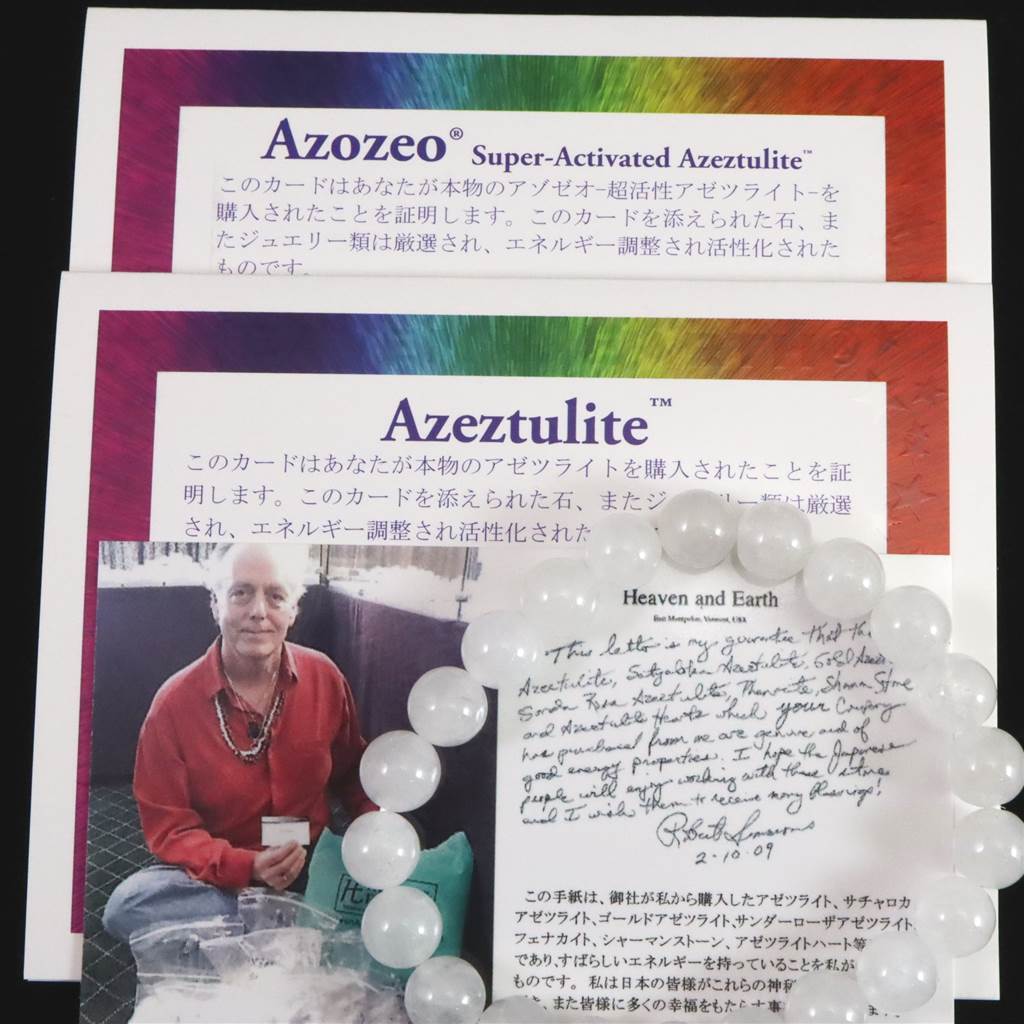 Azozeo® Super-Activated Azeztulite™
このカードはあなたが本物のアゾゼオ-超活性アゼツライト-を
購入されたことを証明します。このカードを添えられた石、ま
たジュエリー類は厳選され、エネルギー調整され活性化された
ものです。
Azeztulite™
このカードはあなたが本物のアゼツライトを購入されたことを証
明します。このカードを添えられた石、またジュエリー類は厳選
され、エネルギー調整され活性化された
Heaven and Earth
East Montpelier, Vermont, USA
This letter is my guarantee that the
Azeztulite, Satyaloka Azeztulite, Gold Azez.
Sanda Rosa Azeztulite, Phenacite, Shaman Stone
and Azeztulite Hearts which your Company
has purchased from me are genuine and of
good energy properties. I hope the Japanese
people will enjoy working with these stones
and I wish them to receive many blessings!
Robert Simmons
2-10-09
この手紙は、御社が私から購入したアゼツライト、サチャロカ
アゼツライト、ゴールドアゼツライト、サンダーローザアゼツライト、
フェナカイト、シャーマンストーン、アゼツライトハート等
であり、すばらしいエネルギーを持っていることを私が
ものです。私は日本の皆様がこれらの神
、また皆様に多くの幸福をもたらす事
ます。